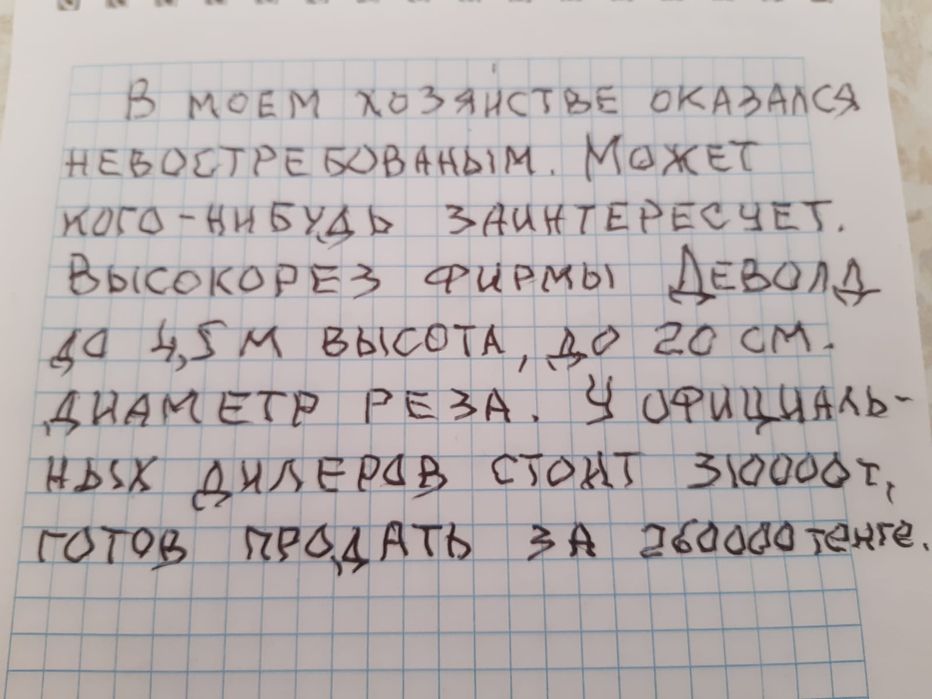 В моем хозяистве оказался
невостребованым. Может
кого-нибудь заинтересует.
Высокорез фирмы Деволд
до 4,5 м высота, до 20 см.
диаметр реза. У официаль-
ных дилеров стоит 310000т,
готов продать за 260000тенге.